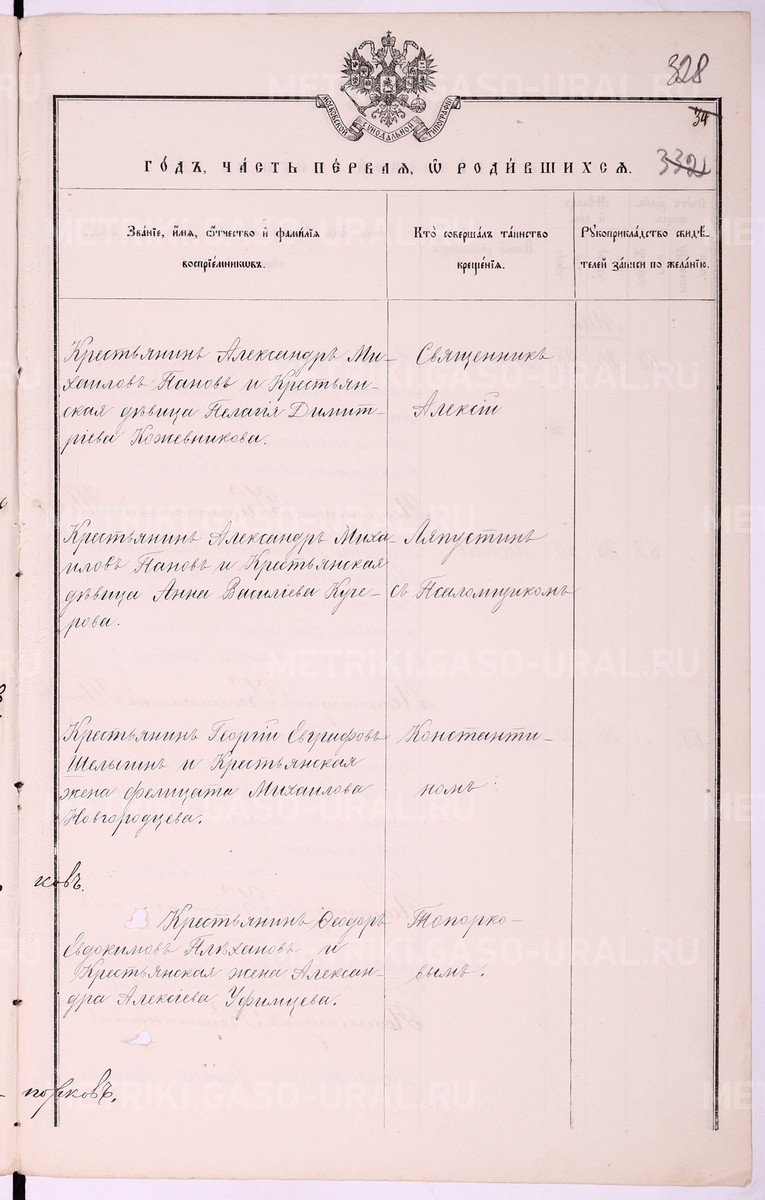 328
МОСКОВСКОЙ СѴНОДАЛЬНОЙ ТИПОГРАФІИ
34
332
ГО́ДЪ, ЧА́СТЬ ПЕ́РВАЯ, Ѽ РОДИ́ВШИХСЯ.
Зва́нїе, и҆́мя, ѻ҆́тчество и҆ фами́лїя
воспрїе́мникѡвъ.
Кто̀ соверша́лъ та́инство
креще́нїя.
Рꙋкоприкла́дство свидѣ́-
телей за́писи по жела́нїю.
Крестьянинъ Александръ Ми-
хаиловъ Пановъ и Крестьян-
ская дѣвица Пелагія Димит-
ріева Кожевникова.
Священникъ
Алексій
Крестьянинъ Александръ Миха-
иловъ Пановъ и Крестьянская
дѣвица Анна Василіева Куче-
рова.
Ляпустинъ
съ Псаломщикомъ
Крестьянинъ Георгій Евграфовъ
Шелыгинъ и Крестьянская
жена Фелицата Михаилова
Новгородцева.
Константи-
номъ
ковъ.
Крестьянинъ Ѳеодоръ
Евдокимовъ Плѣхановъ и
Крестьянская жена Алексан-
дра Алексѣева Уфимцева.
Топорко-
вымъ.
порковъ.
METRIKI.GASO-URAL.RU